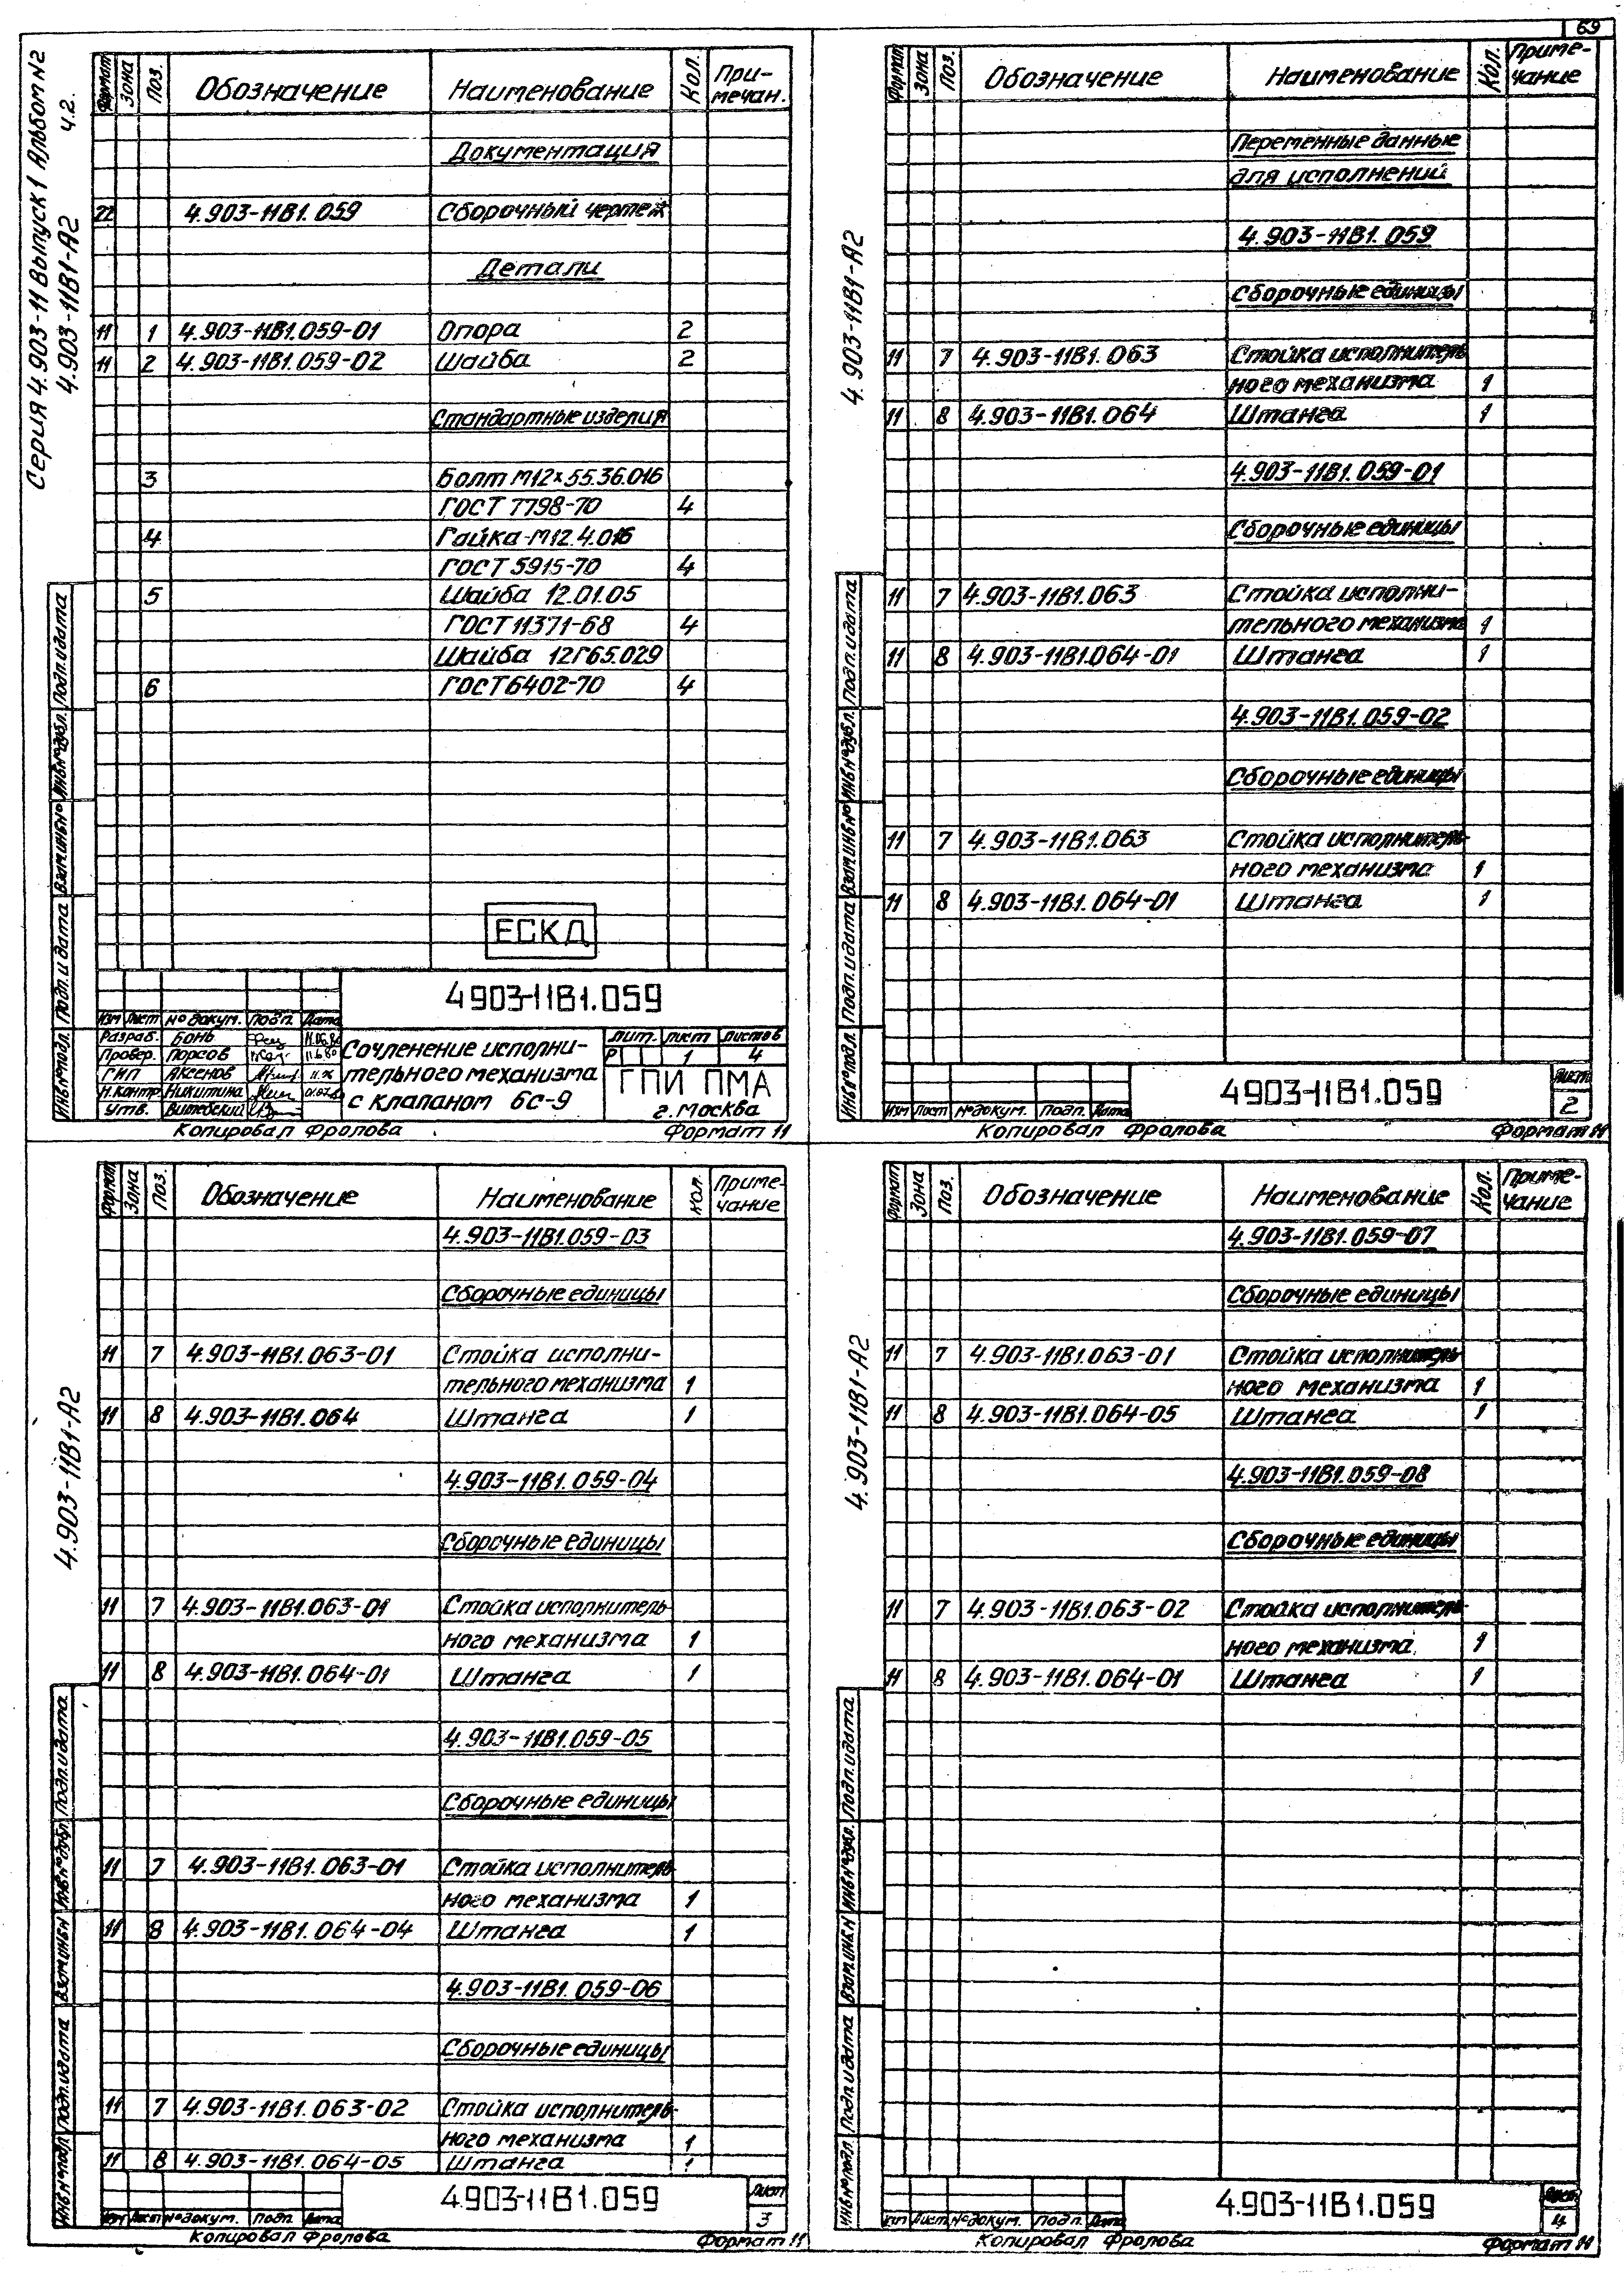 69
Серия 4.903-11 Выпуск 1 Альбом №2
ч.2.
4.903-11В1-А2
Формат Зона Поз. Обозначение Наименование Кол. Примечан.
Документация
22 4.903-11В1.059 Сборочный чертеж
Детали
11 1 4.903-11В1.059-01 Опора 2
11 2 4.903-11В1.059-02 Шайба 2
Стандартные изделия
3 Болт М12×55.36.016
ГОСТ 7798-70 4
4 Гайка М12.4.016
ГОСТ 5915-70 4
5 Шайба 12.01.05
ГОСТ 11371-68 4
Шайба 12Г65.029
6 ГОСТ 6402-70 4
ЕСКД
Инв№подл. Подп. и дата Взам.инв№ Инв№дубл. Подп. и дата
4903-11В1.059
Изм Лист №докум. Подп. Дата
Разраб. Бонь 11.06.80
Провер. Порсов 11.6.80
ГИП Аксенов
Н.контр Никитина
Утв. Витебский
Сочленение исполни-
тельного механизма
с клапаном 6с-9
Лит. Лист Листов
Р 1 4
ГПИ ПМА
г. Москва
Копировал Фролова Формат 11
4.903-11В1-А2
Формат Зона Поз. Обозначение Наименование Кол. Приме-
чание
Переменные данные
для исполнений
4.903-11В1.059
Сборочные единицы
11 7 4.903-11В1.063 Стойка исполнитель
ного механизма 1
11 8 4.903-11В1.064 Штанга 1
4.903-11В1.059-01
Сборочные единицы
11 7 4.903-11В1.063 Стойка исполни-
тельного механизма 1
11 8 4.903-11В1.064-01 Штанга 1
4.903-11В1.059-02
Сборочные единицы
11 7 4.903-11В1.063 Стойка исполнитель-
ного механизма 1
11 8 4.903-11В1.064-01 Штанга 1
Инв№подл. Подп. и дата Взам.инв№ Инв№дубл. Подп. и дата
4903-11В1.059
Изм Лист №докум. Подп. Дата
Лист
2
Копировал Фролова Формат 11
4.903-11В1-А2
Формат Зона Поз. Обозначение Наименование Кол. Приме-
чание
4.903-11В1.059-03
Сборочные единицы
11 7 4.903-11В1.063-01 Стойка исполни-
тельного механизма 1
11 8 4.903-11В1.064 Штанга 1
4.903-11В1.059-04
Сборочные единицы
11 7 4.903-11В1.063-01 Стойка исполнитель-
ного механизма 1
11 8 4.903-11В1.064-01 Штанга 1
4.903-11В1.059-05
Сборочные единицы
11 7 4.903-11В1.063-01 Стойка исполнитель
ного механизма 1
11 8 4.903-11В1.064-04 Штанга 1
4.903-11В1.059-06
Сборочные единицы
11 7 4.903-11В1.063-02 Стойка исполнитель-
ного механизма 1
11 8 4.903-11В1.064-05 Штанга 1
Инв№подл. Подп. и дата Взам.инв.№ Инв№дубл. Подп. и дата
4.903-11В1.059
Изм Лист №докум. Подп. Дата
Лист
3
Копировал Фролова Формат 11
4.903-11В1-А2
Формат Зона Поз. Обозначение Наименование Кол. Приме-
чание
4.903-11В1.059-07
Сборочные единицы
11 7 4.903-11В1.063-01 Стойка исполнитель
ного механизма 1
11 8 4.903-11В1.064-05 Штанга 1
4.903-11В1.059-08
Сборочные единицы
11 7 4.903-11В1.063-02 Стойка исполнитель-
ного механизма 1
11 8 4.903-11В1.064-01 Штанга 1
Инв№подл. Подп. и дата Взам.инв.№ Инв№дубл. Подп. и дата
4.903-11В1.059
Изм Лист №докум. Подп. Дата
Лист
4
Копировал Фролова Формат 11